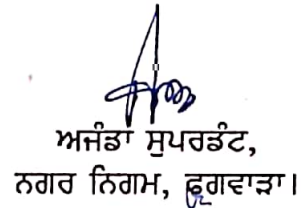 ਅਜੰਡਾ ਸੁਪਰਡੰਟ,
ਨਗਰ ਨਿਗਮ, ਫ਼ਗਵਾੜਾ।